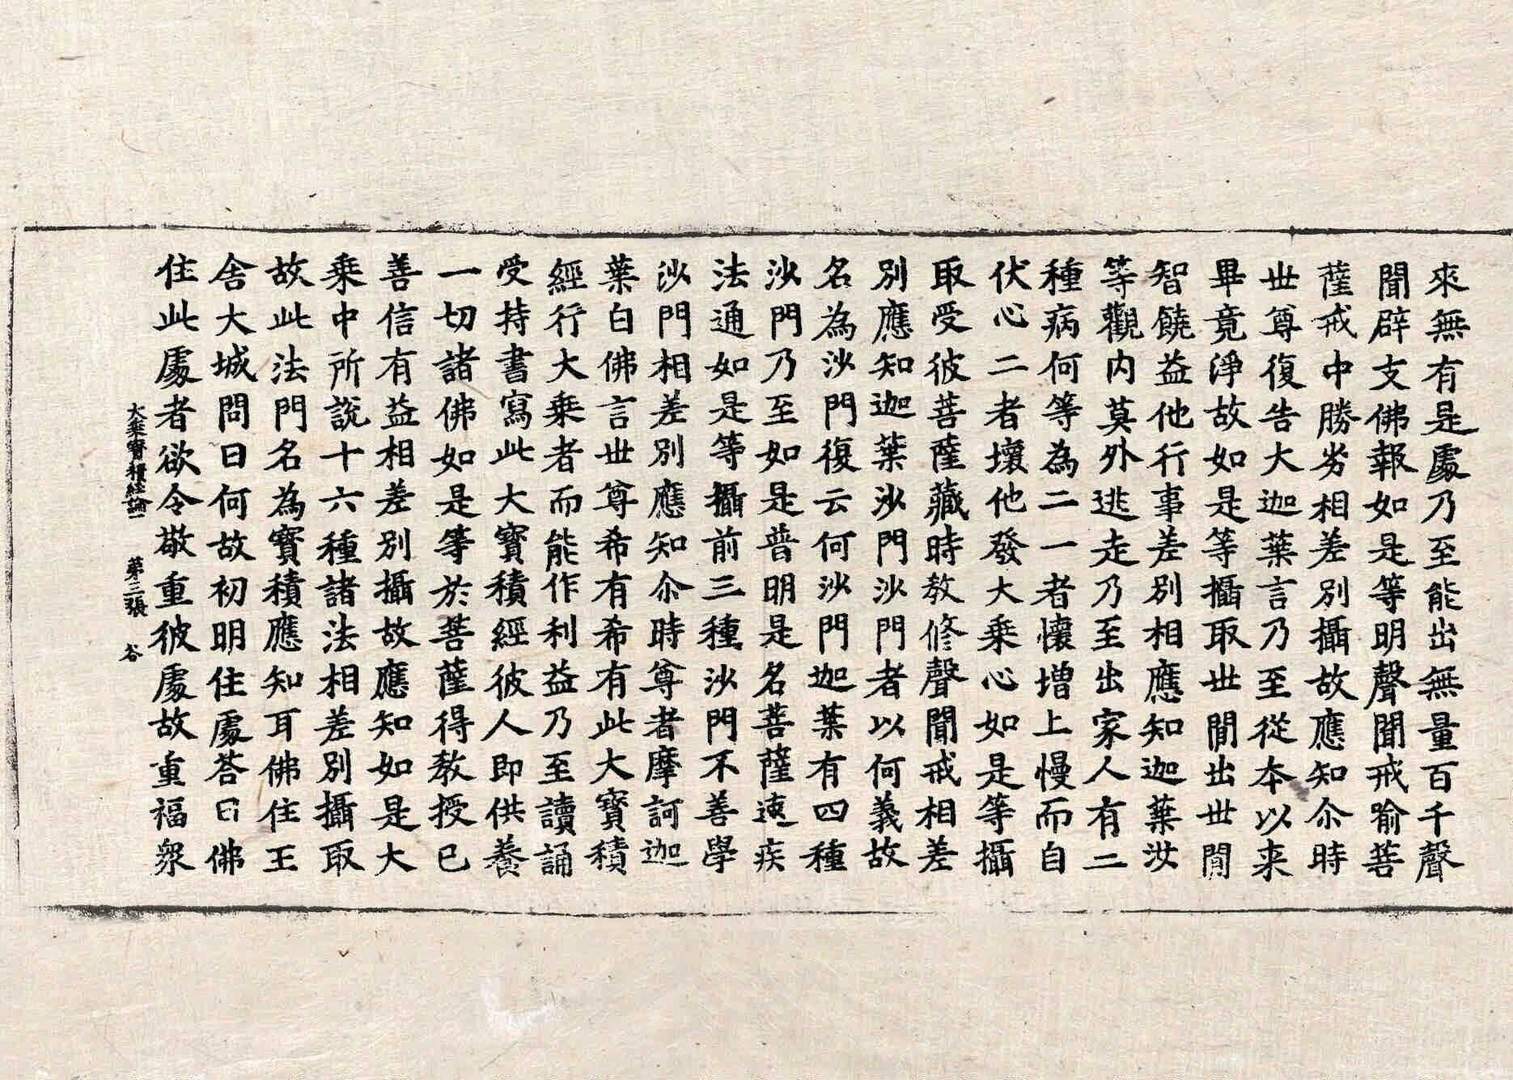 來無有是處乃至能出無量百千聲
聞辟支佛報如是等明聲聞戒喻菩
薩戒中勝劣相差別攝故應知尒時
世尊復告大迦葉言乃至從本以来
畢竟淨故如是等攝取世間出世間
智饒益他行事差別相應知迦葉汝
等觀内莫外逃走乃至出家人有二
種病何等為二一者懷增上慢而自
伏心二者壞他發大乘心如是等攝
取受彼菩薩藏時教修聲聞戒相差
別應知迦葉沙門沙門者以何義故
名為沙門復云何沙門迦葉有四種
沙門乃至如是普明是名菩薩速疾
法通如是等攝前三種沙門不善學
沙門相差別應知尒時尊者摩訶迦
葉白佛言世尊希有希有此大寶積
經行大乘者而能作利益乃至讀誦
受持書寫此大寶積經彼人即供養
一切諸佛如是等於菩薩得教授已
善信有益相差別攝故應知如是大
乘中所說十六種諸法相差別攝取
故此法門名為寶積應知耳佛住王
舍大城問曰何故初明住處答曰佛
住此處者欲令敬重彼處故重福衆
大乘寶積經論一 第三張 谷